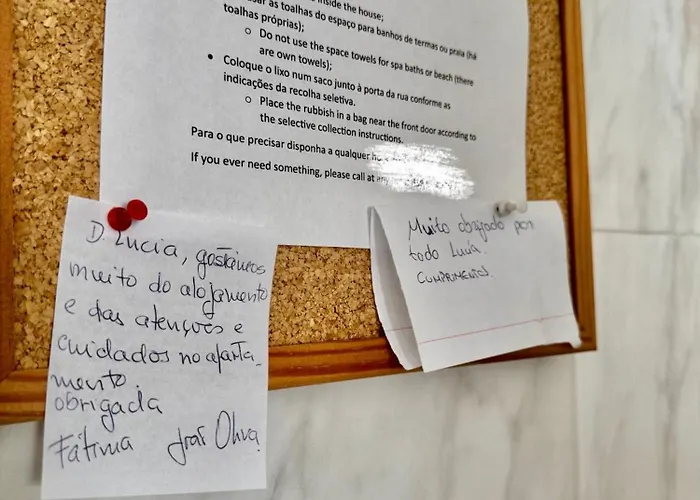 inside the house;
as toalhas do espaço para banhos de termas ou praia (há
toalhas próprias);
o Do not use the space towels for spa baths or beach (there
are own towels);
• Coloque o lixo num saco junto à porta da rua conforme as
indicações da recolha seletiva.
o Place the rubbish in a bag near the front door according to
the selective collection instructions.
Para o que precisar disponha a qualquer
If you ever need something, please call at
D. Lucia, gostamos
muito do alojamento
e das atenções e
cuidados no aparta_
mento.
obrigada
Fátima
Muito obrigado por
todo Lucia.
CUMPRIMENTOS.